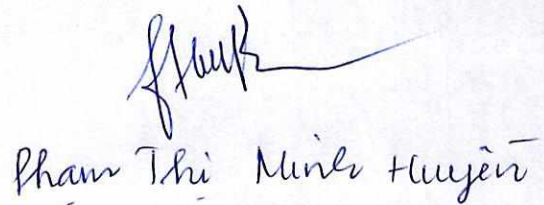 Pham Thi Minh Huyền